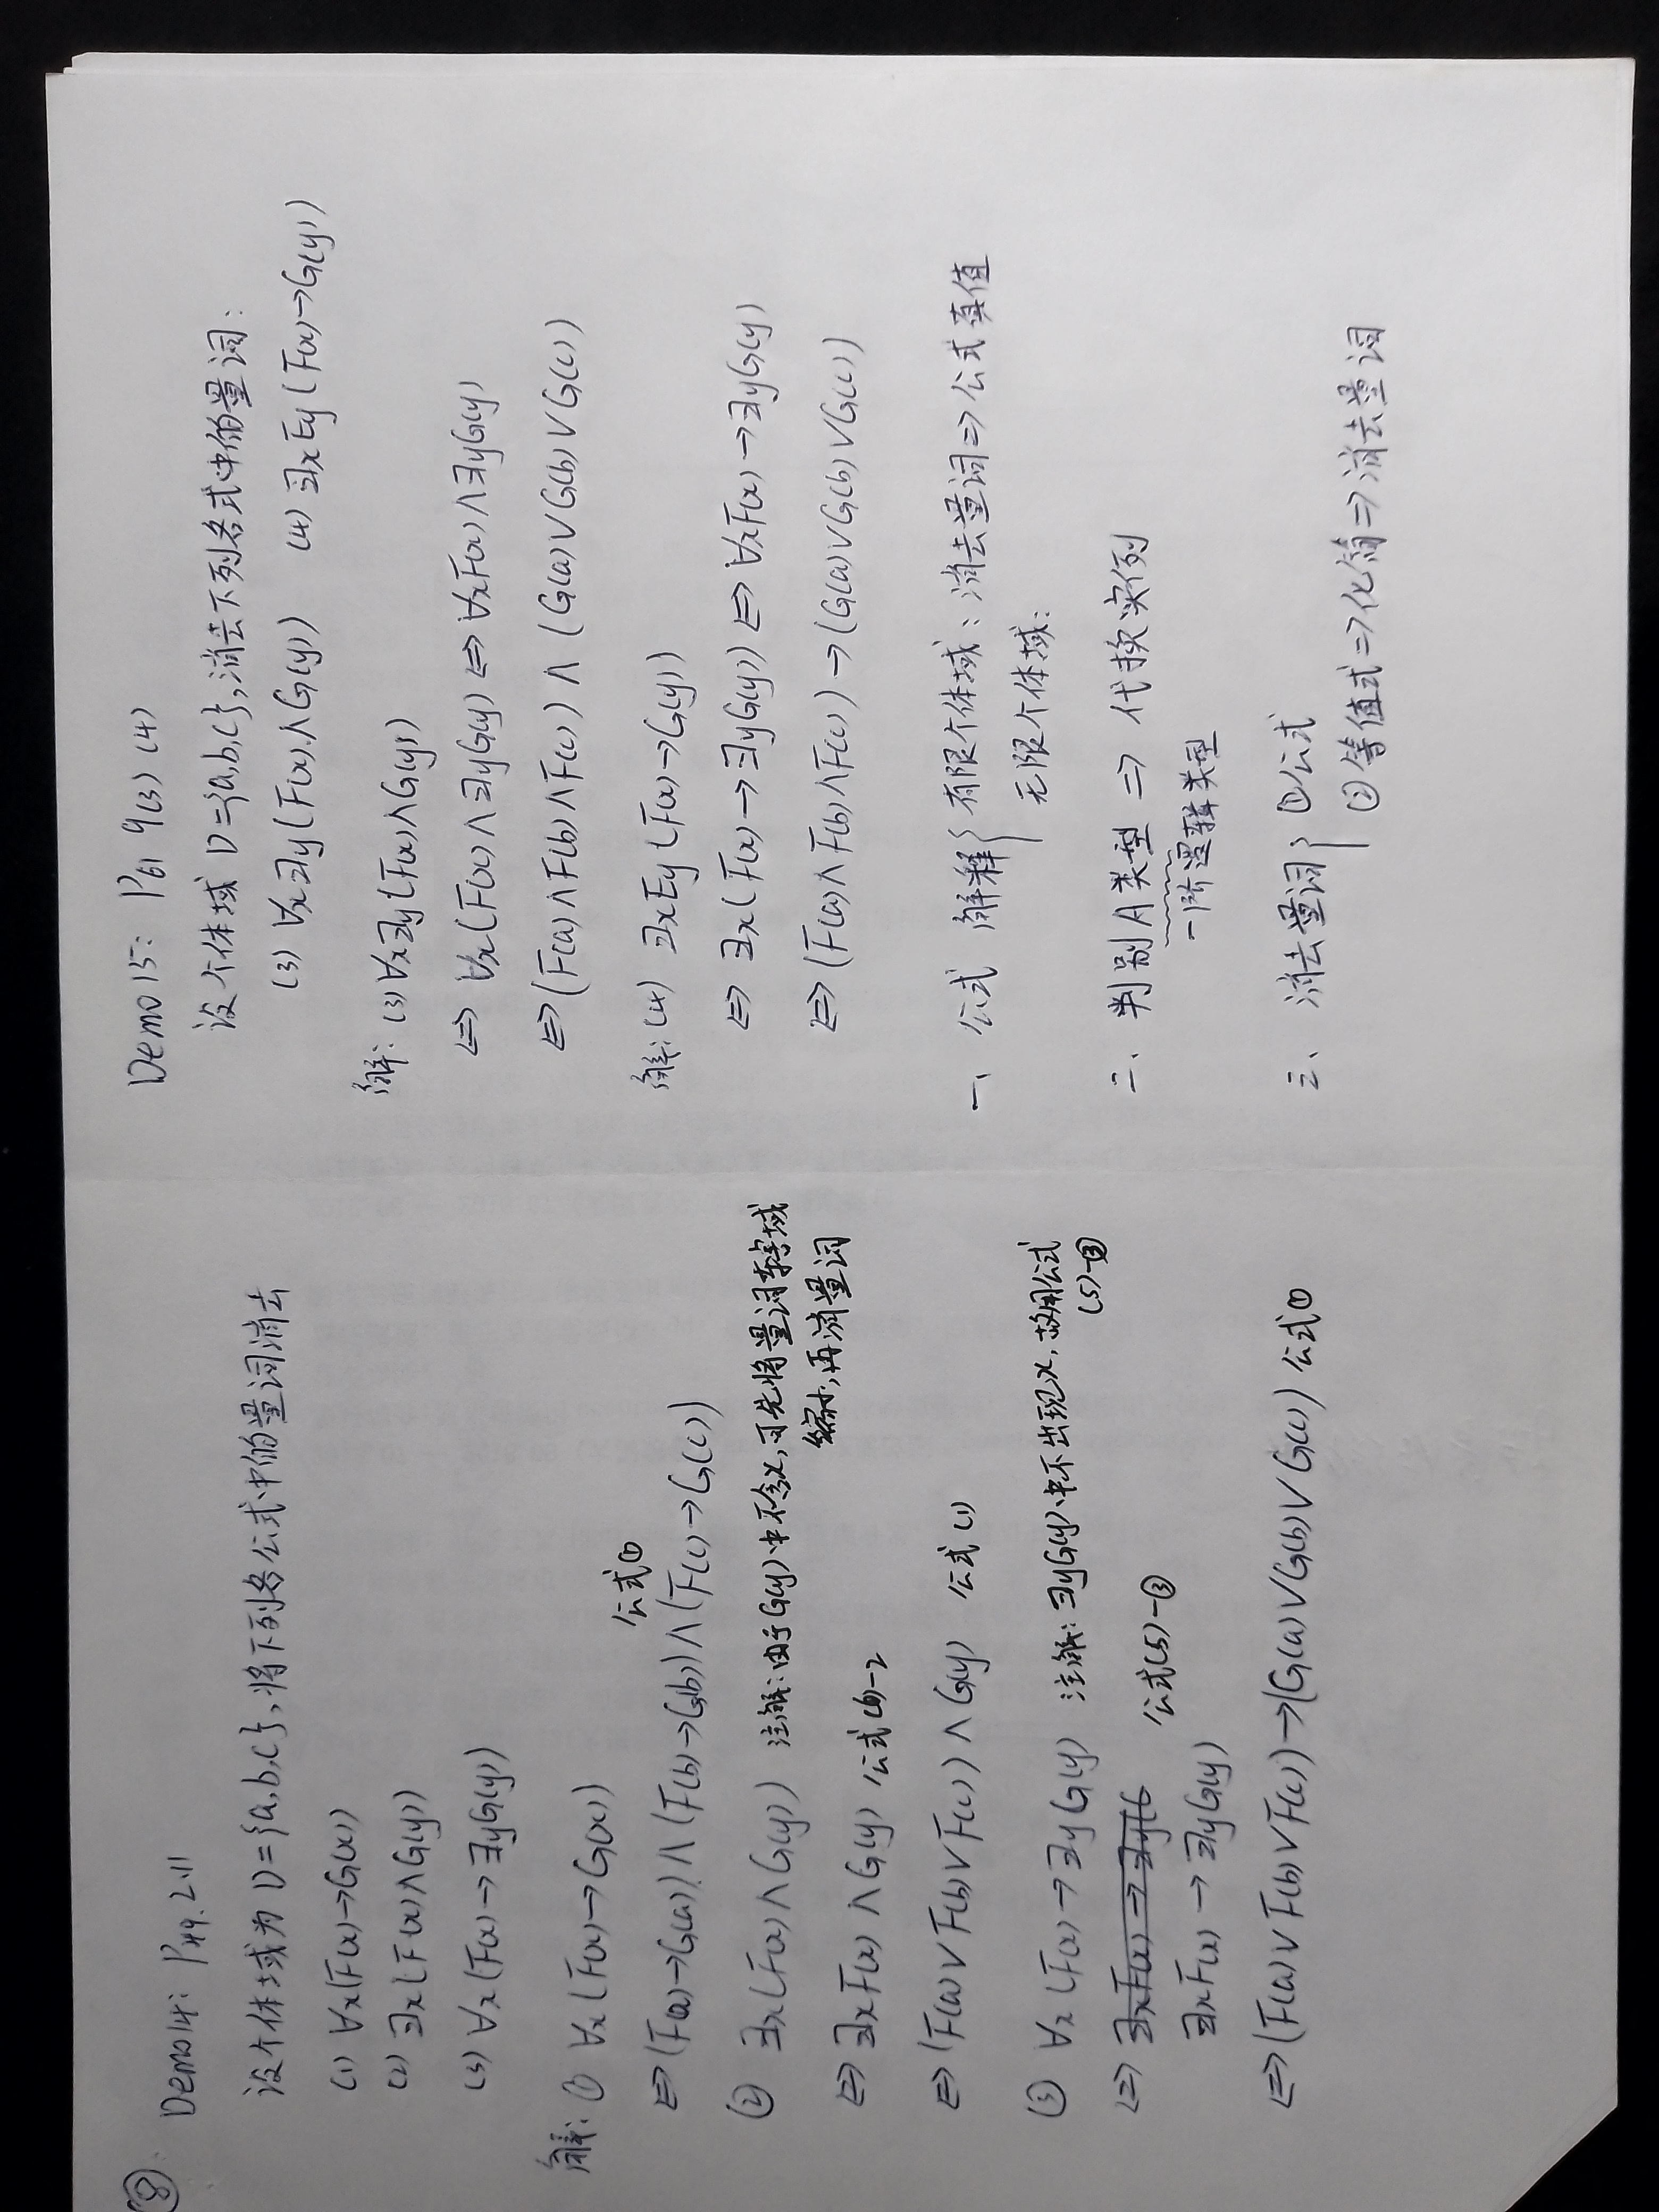 ⑧
Demo14: P49. 2.11
设个体域为 D={a,b,c},将下列各公式中的量词消去
(1) ∀x(F(x)→G(x))
(2) ∃x(F(x)∧G(y))
(3) ∀x(F(x)→∃yG(y))
解: ① ∀x(F(x)→G(x))
公式①
⇔(F(a)→G(a))∧(F(b)→G(b))∧(F(c)→G(c))
② ∃x(F(x)∧G(y)) 注解:由于G(y)中不含x,可先将量词辖域
缩小,再消量词
⇔ ∃xF(x)∧G(y) 公式(6)-2
⇔ (F(a)∨F(b)∨F(c))∧G(y) 公式(1)
③ ∀x(F(x)→∃yG(y) 注解:∃yG(y)中不出现x,故用公式
(5)-③
⇔ ∃xF(x)→∃y(G
公式(5)-③
∃xF(x)→∃yG(y)
⇔(F(a)∨F(b)∨F(c))→(G(a)∨G(b)∨G(c)) 公式①
Demo15: P61 9(3)(4)
设个体域 D={a,b,c},消去下列各式中的量词:
(3) ∀x∃y(F(x)∧G(y)) (4) ∃xEy(F(x)→G(y))
解: (3)∀x∃y(F(x)∧G(y))
⇔ ∀x(F(x)∧∃yG(y)⇔∀xF(x)∧∃yG(y)
⇔(F(a)∧F(b)∧F(c))∧(G(a)∨G(b)∨G(c))
解:(4) ∃xEy(F(x)→G(y))
⇔ ∃x(F(x)→∃yG(y))⇔∀xF(x)→∃yG(y)
⇔(F(a)∧F(b)∧F(c))→(G(a)∨G(b)∨G(c))
一、公式 解释{有限个体域:消去量词⇒公式真值
无限个体域:
二、判别A类型 ⇒ 代换实例
一阶逻辑类型
三、消去量词{①公式
②等值式⇒化简⇒消去量词